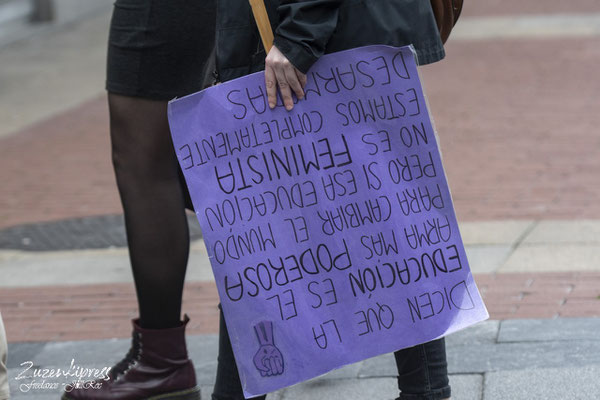 DICEN QUE LA
EDUCACIÓN ES EL
ARMA MÁS PODEROSA
PARA CAMBIAR EL MUNDO-
PERO SI ESA EDUCACIÓN
NO ES FEMINISTA
ESTAMOS COMPLETAMENTE
DESARMADAS